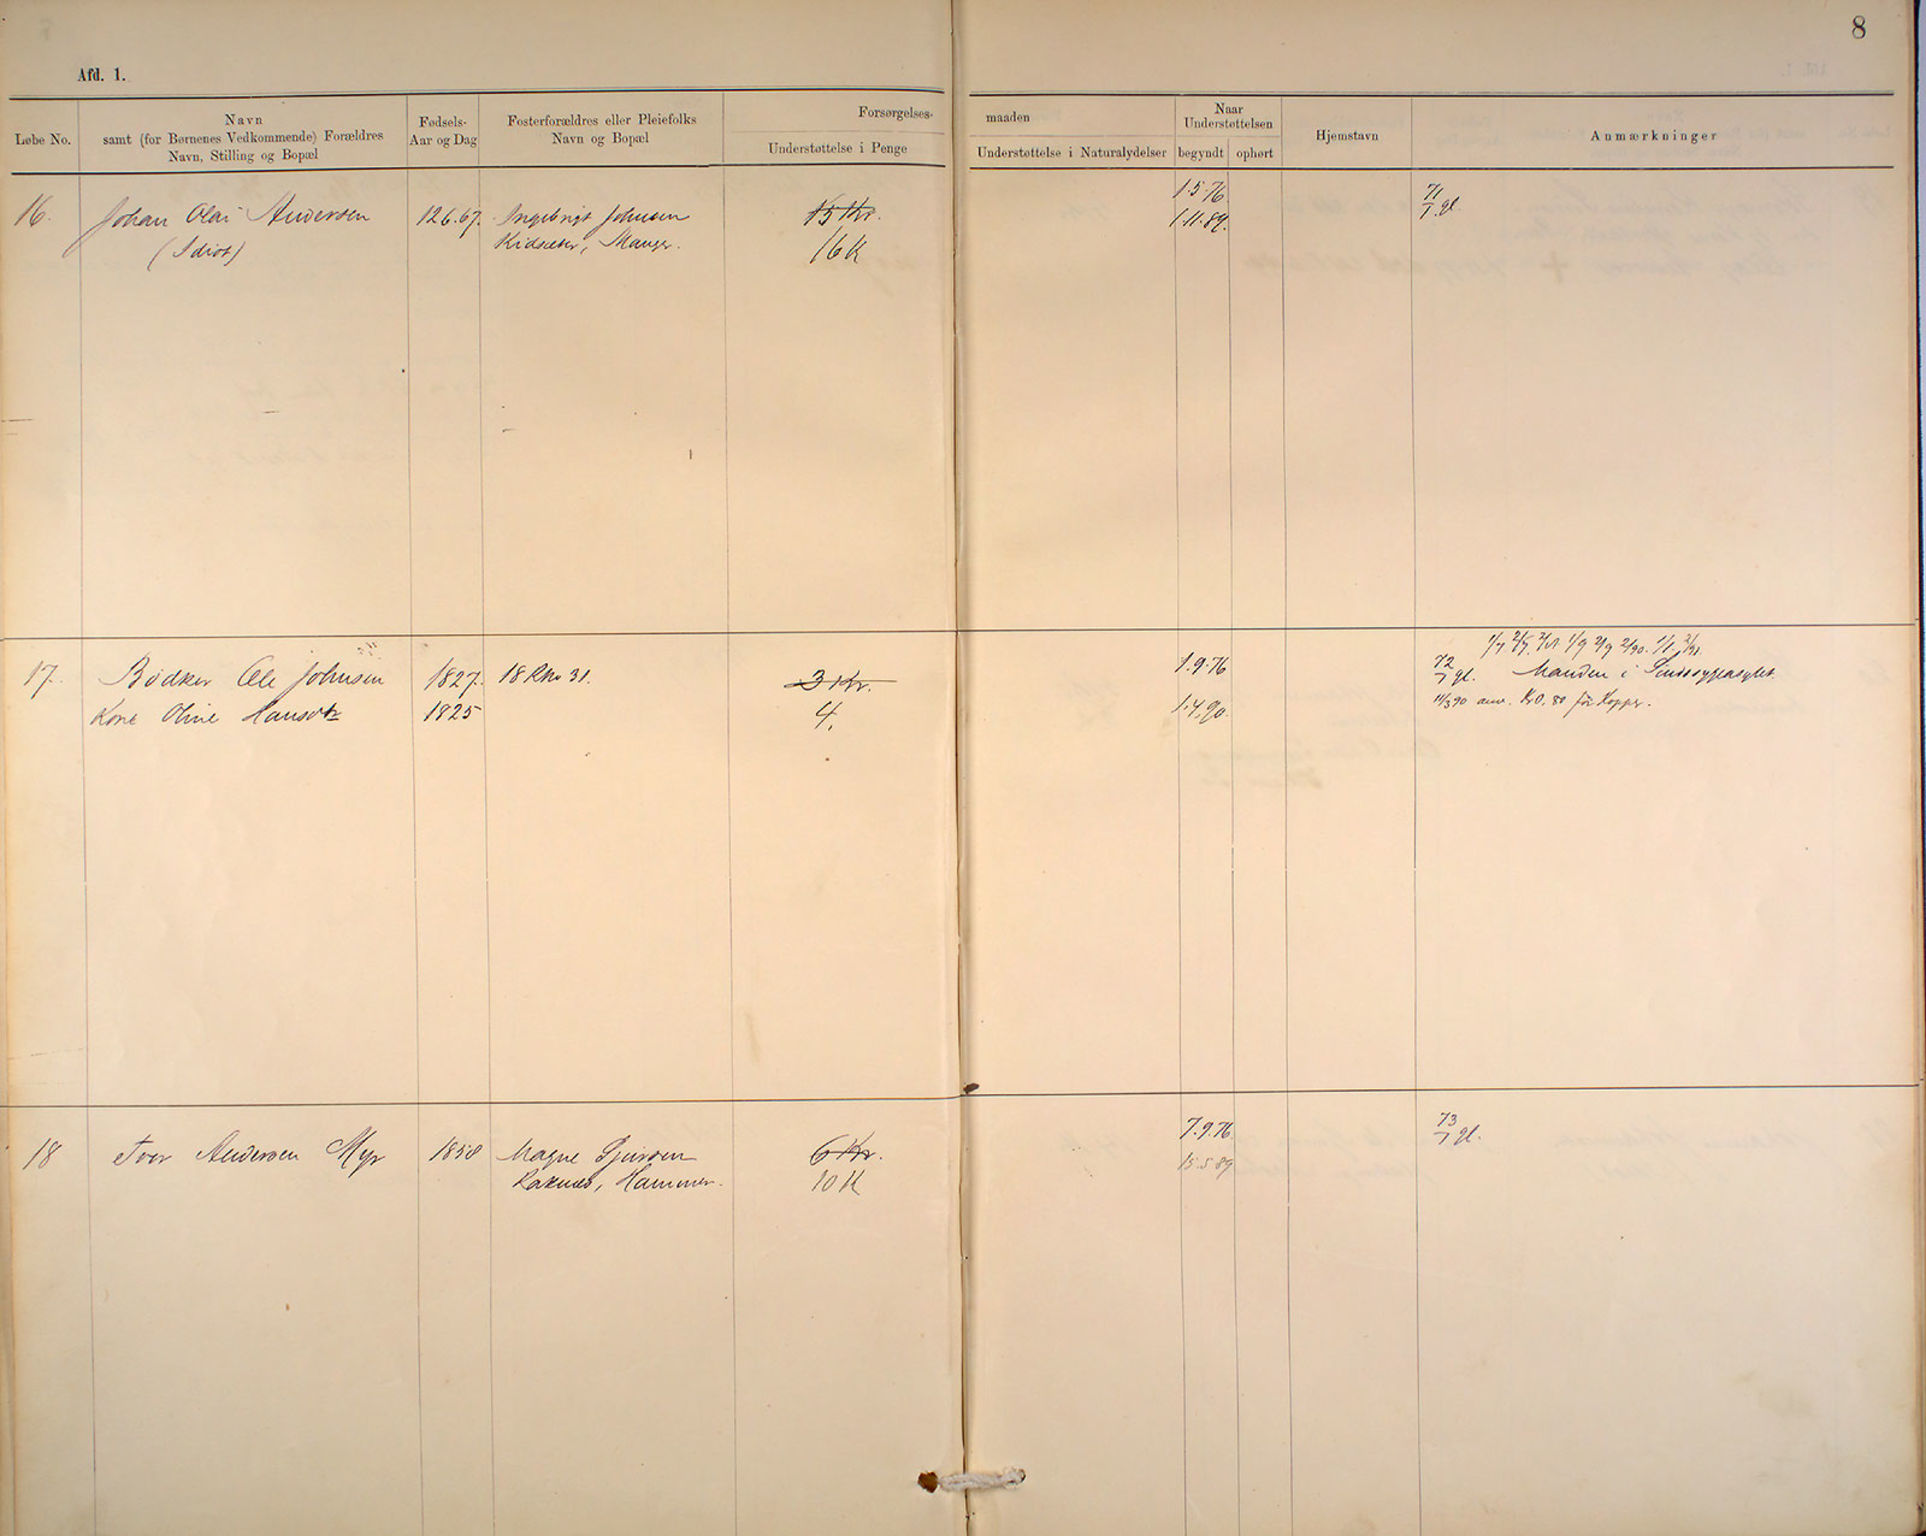 8
Afd. 1.
Løbe No.
Navn
samt (for Børnenes Vedkommende) Forældres
Navn, Stilling og Bopæl
Fødsels-
Aar og Dag
Fosterforældres eller Pleiefolks
Navn og Bopæl
Forsørgelses-
Understøttelse i Penge
maaden
Understøttelse i Naturalydelser
Naar
Understøttelsen
begyndt
ophørt
Hjemstavn
Anmærkninger
16.
Johan Olai Andersen
(Idiot)
12.6.67.
Ingebrigt Johnsen
Kidsæter, Manger.
15 Kr.
16 K
1.5.76.
1.11.89.
71/7 gl.
17.
Bødker Ole Johnsen
Kone Oline Hansdtr
1827.
1825
18 Rko 31.
3 Kr.
4.
1.9.76
1.4.90.
72/7 gl. Manden i Sindssygeasylet
11/3 90 anv. Kr 0.80 for Kopper.
18
Iver Andersen Myr
1858
Magne
Raknes, Hammer.
6 Kr.
10 K
7.9.76
15.5.89
73/7 gl.